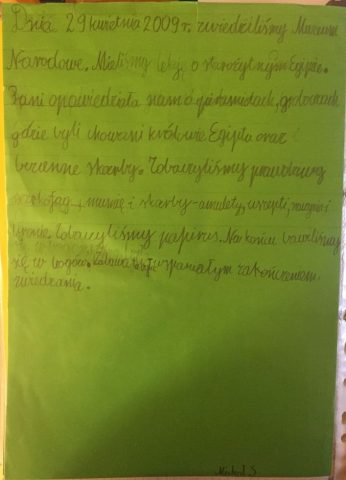 Dnia 29 kwietnia 2009 r. zwiedziliśmy Muzeum
Narodowe. Mieliśmy lekcję o starożytnym Egipcie.
Pani opowiedziała nam o piramidach, grobowcach
gdzie byli chowani królowie Egiptu oraz
bezcenne skarby. Zobaczyliśmy prawdziwy
sarkofag, mumię i skarby - amulety, uszepti,
Zobaczyliśmy papirus. Na końcu bawiliśmy
się w bogów. Zabawa była wspaniałym zakończeniem
zwiedzania.
Michał S